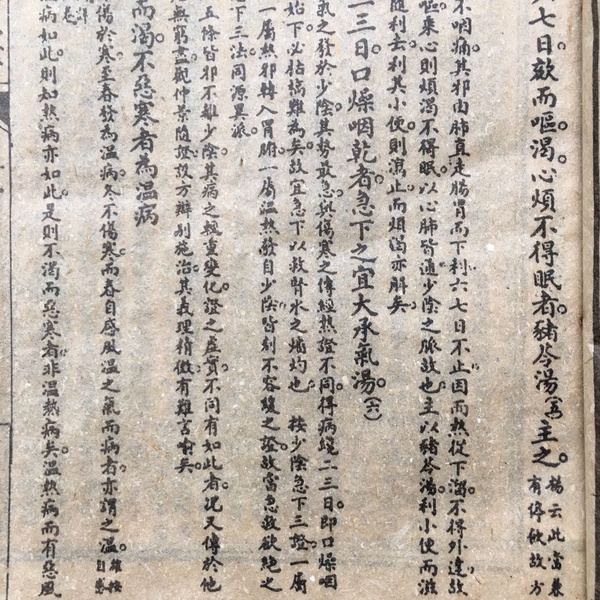 六七日欬而嘔渴。心煩不得眠者。豬苓湯主之。楊云此當兼
有停飲故方
不咽痛其邪由肺直走腸胃而下利六七日不止因而熱從下渴。不得外達故
嘔。乘心則煩渴不得眠。以心肺皆通少陰之脈故也。主以豬苓湯。利小便而滋
隨利去。利其小便。則瀉止而煩渴亦解矣。
二三日口燥咽乾者。急下之。宜大承氣湯。(六)
氣之發於少陰。其勢敢急。與傷寒之傳經熱證不同。得病纔二三日。即口燥咽
始下。必枯槁難為矣。故宜急下以救腎水之燔灼也。 按少陰急下三證。一屬
一屬熱邪轉入胃腑。一屬溫熱發自少陰。皆刻不容緩之證。故當急救欲絕之
急下三法。同源異派。
五條皆邪不離少陰。其病之輕重變化。證之虛實不同有如此者。況又傳於他
無窮盡。觀仲景隨證設方。辨別施治。其義理精微。有難言喻矣。
而渴不惡寒者為溫病
傷於寒。至春發為溫病。冬不傷寒。而春自感風溫之氣而病者。亦謂之溫。雄按
自感
病如此。則知熱病亦如此。是則不渴而惡寒者。非溫熱病矣。溫熱病而有惡風